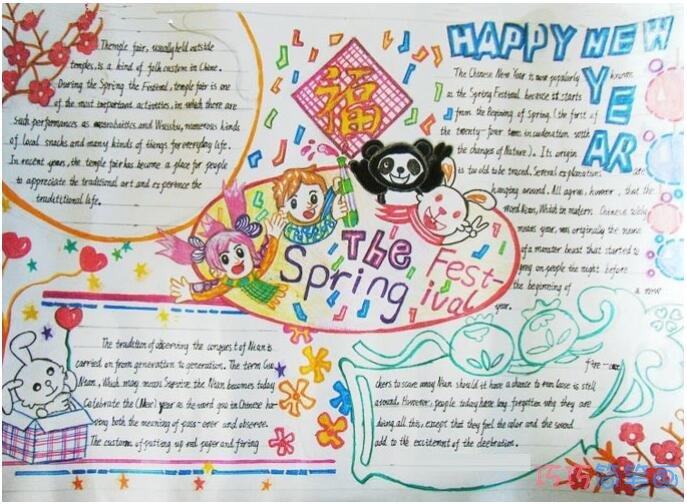 HAPPY NEW
YEAR
福
The
Spring
Fest-
ival
Themple fair, usually held outside
temples, is a kind of folk custom in Chine.
During the Spring the Festival, temple fair is one
of the most important activities, in which there are
Such performances as acorobaitics and Wushu, numerous kinds
of local snacks and many kinds of things for everyday life.
In recent years, the temple fair has become a place for people
to appreciate the traditional art and experence the
tradetitional life.
The Chinese New Year is now popularly known
as the Spring Festival because it starts
from the Begining of Spring (the first of
the twenty-four terms in coordination with
the changes of Nature). Its origin
is too old to be traced. Several explanations are
hanging around. All agree, however, that the
word Nian, Which in modern Chinese solely
means year, was originally the name
of a monster beast that started to
prey on people the night before
the beginning of a new
year.
The tradition of observing the conquest of Nian is
carried on from generation to generation. The term Guo
Nian, Which may mean Survive the Nian becomes today
Celebrate the (New) year as the word guo in Chinese ha-
ving both the meaning of pass-over and observe.
The custom of putting up red paper and firing
fire-crac
kers to scare away Nian should it have a chance to run loose is still
around. However, people today have long forgotten why they are
doing all this, except that they feel the color and the sound
add to the excitement of the celebration.
巧巧简笔画